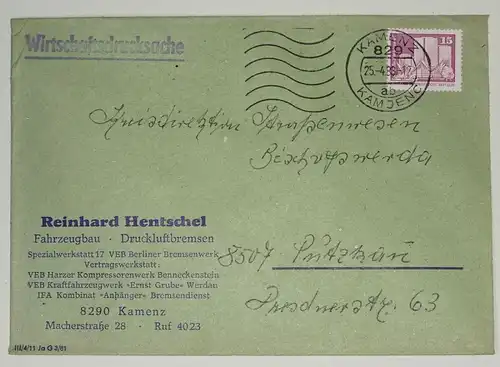 Wirtschaftsdrucksache
KAMENZ
829
25.-4.
ab
KAMJENC
15
Kreisdirektion Straßenwesen
Bischofswerda
Reinhard Hentschel
Fahrzeugbau · Druckluftbremsen
Spezialwerkstatt 17 VEB Berliner Bremsenwerk
Vertragswerkstatt:
VEB Harzer Kompressorenwerk Benneckenstein
VEB Kraftfahrzeugwerk »Ernst Grube« Werdau
IFA Kombinat "Anhänger" Bremsendienst
8290 Kamenz
Macherstraße 28 · Ruf 4023
8507 Putzkau
Dresdnerstr. 63
III/4/11 Ja G 2/81